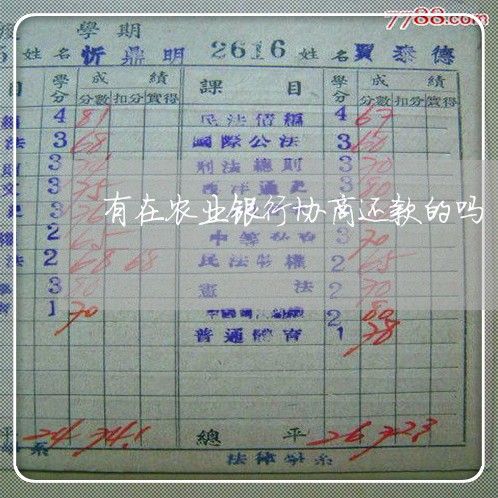 7788.com
學期
5 姓名 忻鼎明 2616 姓名 賈泰德
目 學分 成績 課目 學分 成績
分數 扣分 實得 分數 扣分 實得
4 81 民法債編 4 67
法 3 68 國際公法 3 60
3 刑法總則 3 70
3 75 西洋通史 3 80
有在农业银行协商还款的吗
2 65 3 70
法 2 68 68 民法物權 2 65
3 80 憲法 2 70
1 70 2 80
普通體育 1 78
平 24 74.1 總平 26 72.3
系 法律學系